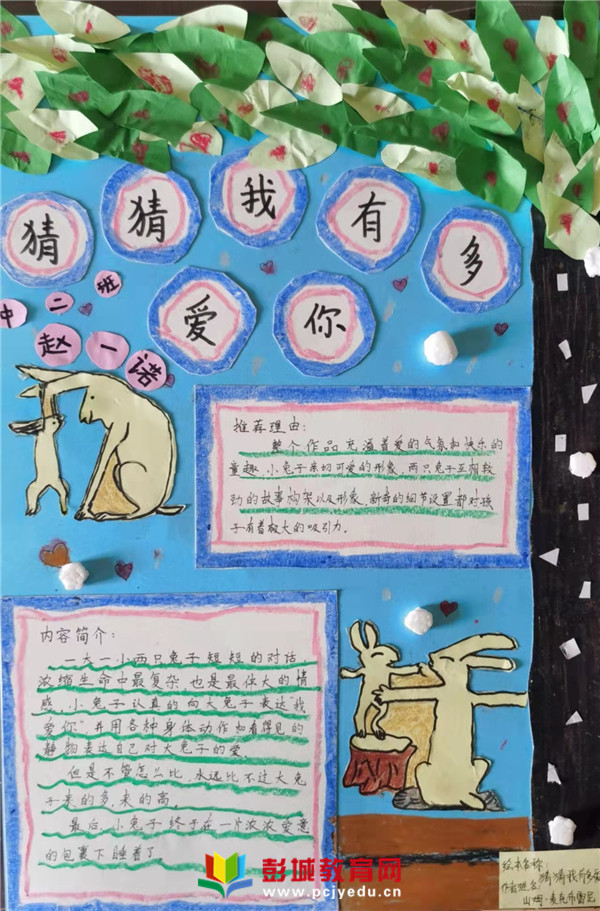 猜猜我有多
爱你
中二班
赵一诺
推荐理由:
整个作品充溢着爱的气氛和快乐的
童趣,小兔子亲切可爱的形象、两只兔子互相较
劲的故事构架以及形象、新奇的细节设置都对孩
子有着极大的吸引力。
内容简介:
一大一小两只兔子短短的对话
浓缩生命中最复杂,也是最伟大的情
感。小兔子认真的向大兔子表达"我
爱你"并用各种身体动作和看得见的
静物表达自己对大兔子的爱。
但是不管怎么比,永远比不过大兔
子来的多来的高。
最后,小兔子终于在一片浓浓爱意
的包裹下睡着了
彭城教育网
www.pcjyedu.cn
绘本名称:
猜猜我有多爱
山姆·麦克布雷尼